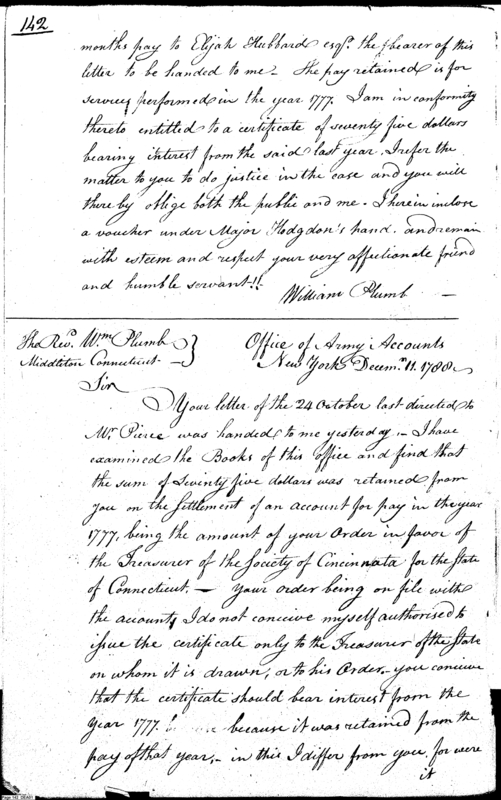 142
months pay to Elijah Hubbard esqr. the bearer of this
letter to be handed to me - The pay retained is for
services performed in the year 1777. I am in conformity
thereto entitled to a certificate of seventy five dollars
bearing interest from the said last year. I refer the
matter to you to do justice in the case and you will
there by oblige both the public and me - I herein inclose
a voucher under Major Hodgdon's hand. and remain
with esteem and respect your very affectionate friend
and humble servant!!
William Plumb -
The Revd. Wm Plumb }
Middleton Connecticut - }
Office of Army Accounts
New York Decemr. 11. 1788.
Sir
Your letter of the 24 October last directed to
Mr. Pierce was handed to me yesterday. - I have
examined the Books of this office and find that
the sum of Seventy five dollars was retained from
you on the Settlement of an account for pay in the year
1777, being the amount of your Order in favor of
the Treasurer of the Society of Cincinnata for the State
of Connecticut. - Your order being on file with
the accounts I do not concive myself authorised to
issue the certificate only to the Treasurer of the State
on whom it is drawn, or to his Order. - you concive
that the certificate should bear interest from the
year 1777. because it was retained from the
pay of that year, - in this I differ from you, for were
it